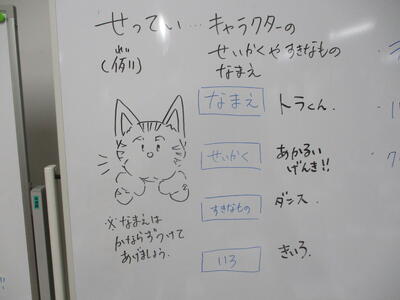 せってい…キャラクターの
せいかくやすきなもの
なまえ
(例)
れい
なまえ トラくん.
せいかく あかるい
げんき!!
すきなもの ダンス
いろ きいろ.
※なまえは
かならずつけて
あげましょう.